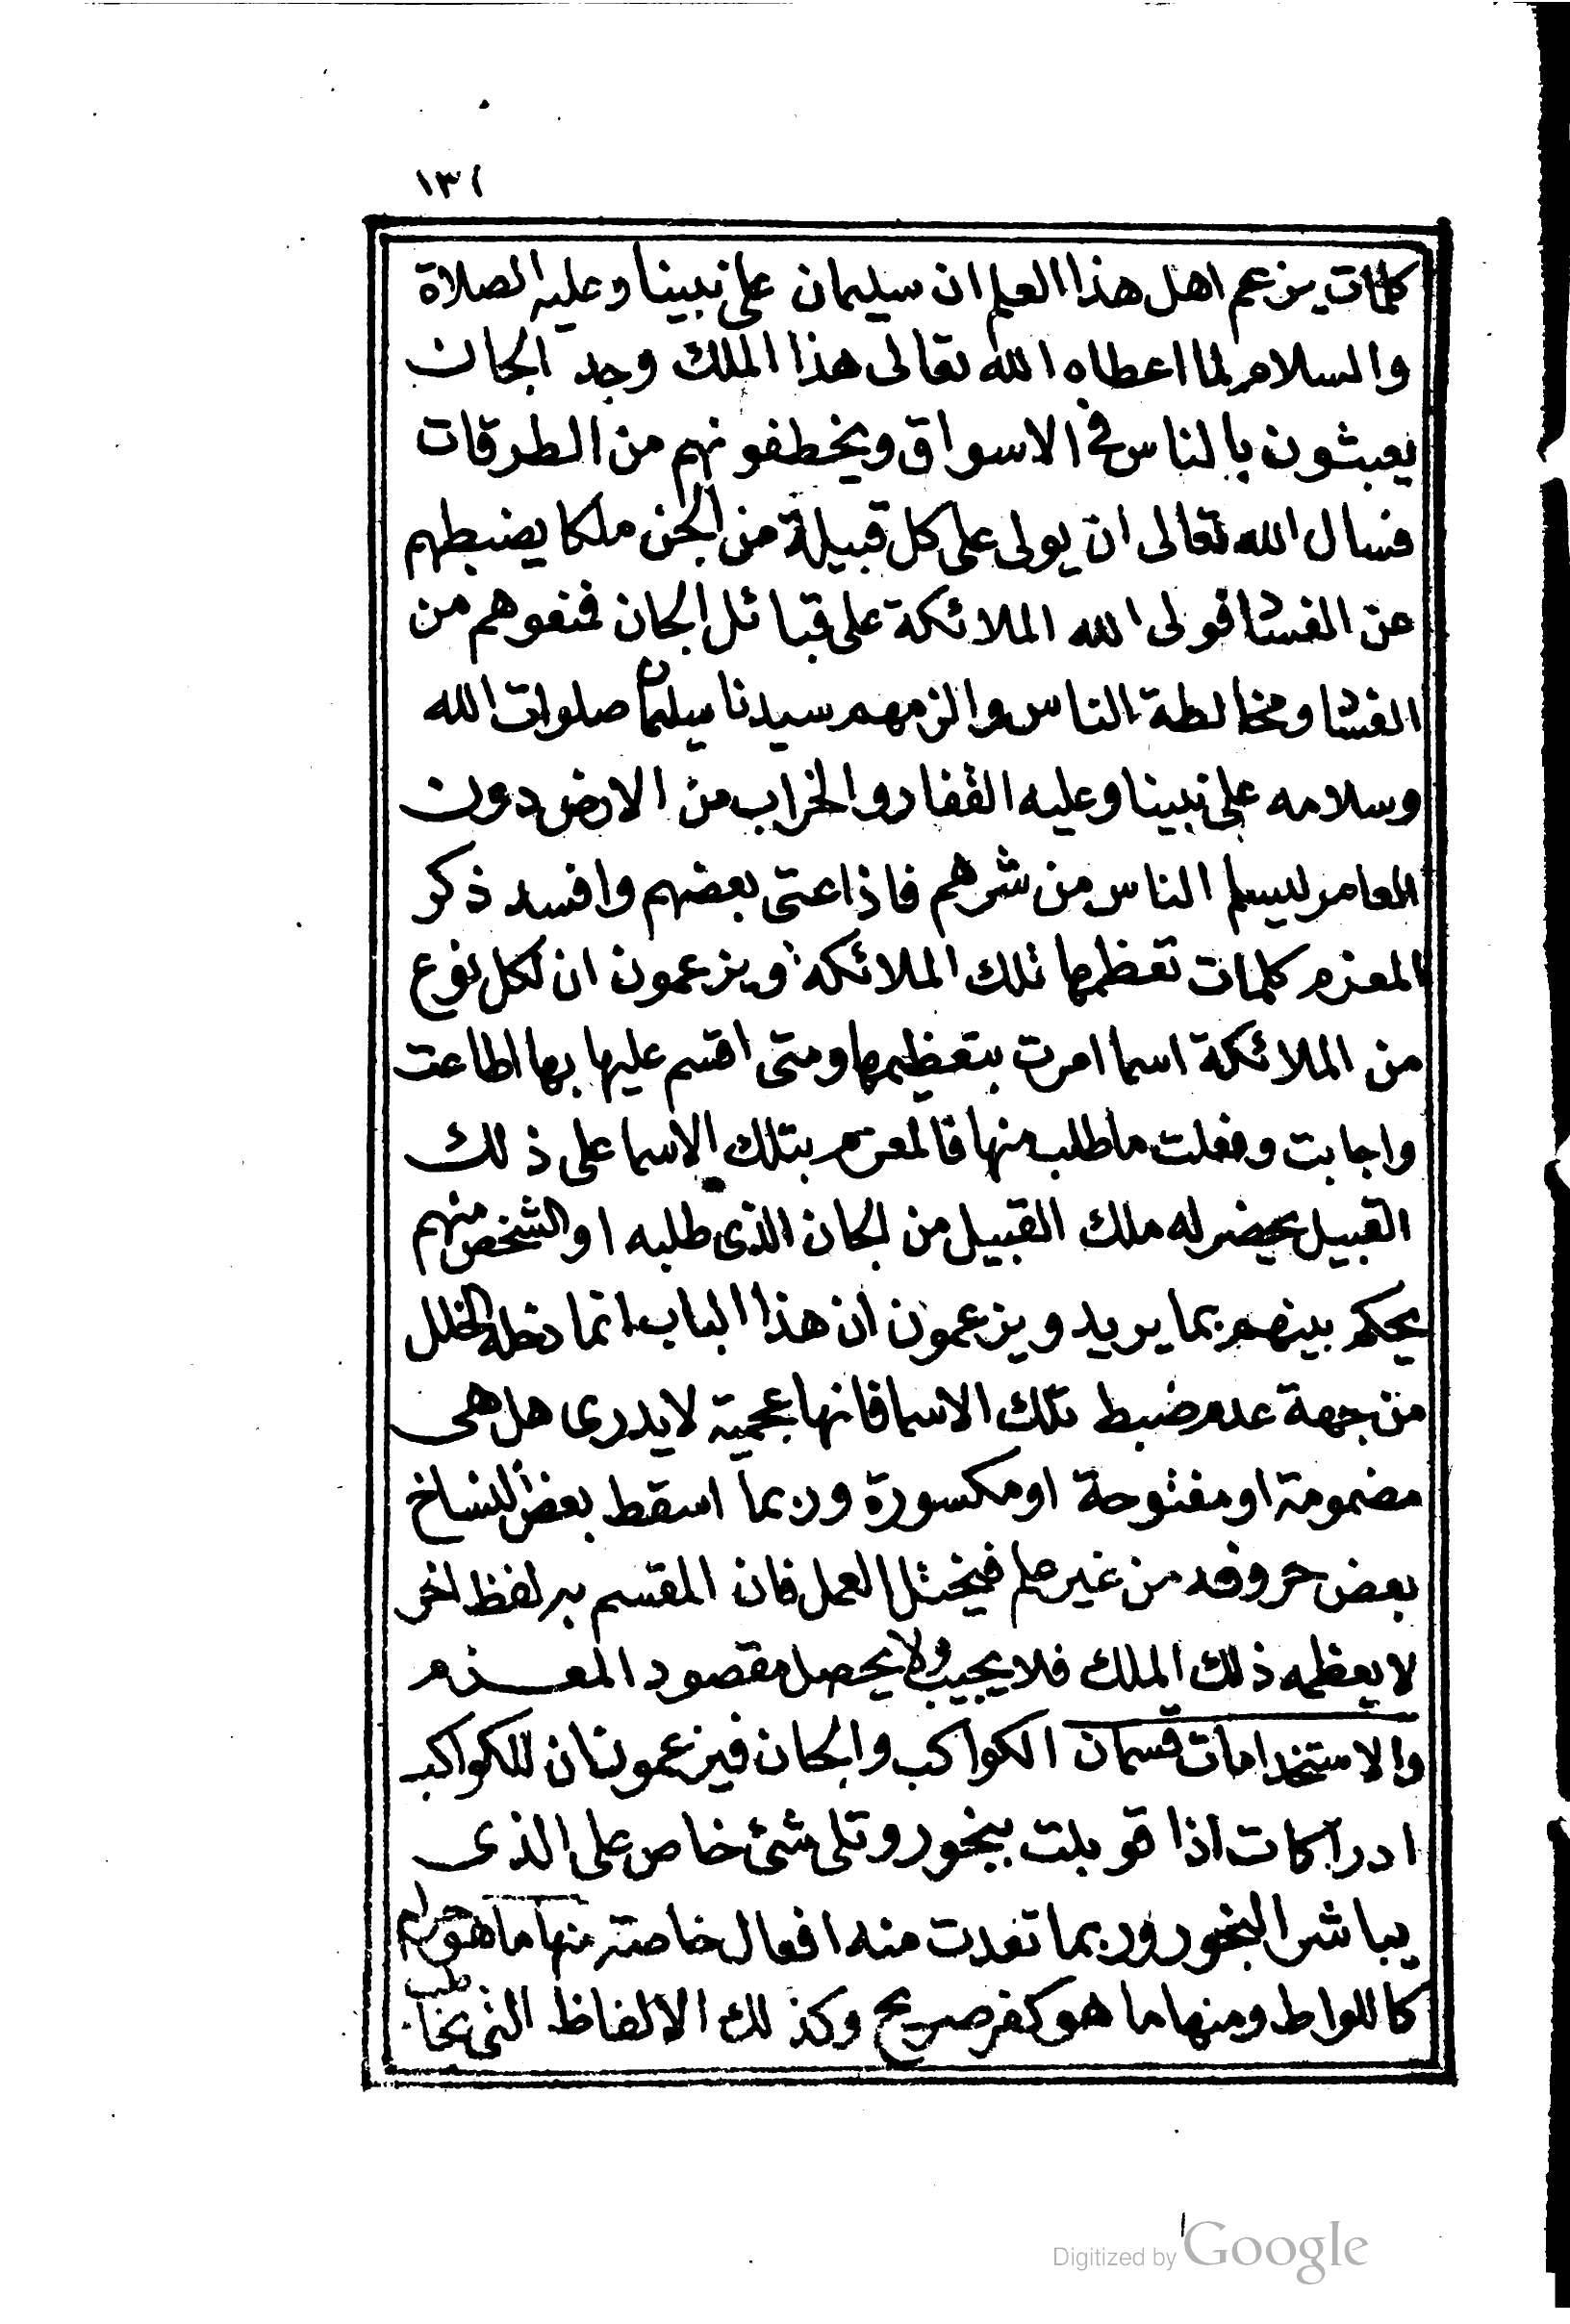 ١٣١
كلمات يزعم اهل هذا العلم ان سليمان على نبينا وعليه الصلاة
والسلام لما اعطاه الله تعالى هذا الملك وجد الجان
يعبثون بالناس فى الاسواق ويخطفونهم من الطرقات
فسال الله تعالى ان يولى على كل قبيلة من الجن ملكا يضبطهم
عن الفساد فولى الله الملائكة على قبائل الجان فمنعوهم من
الفساد ومخالطة الناس والزمهم سيدنا سيلمان صلوات الله
وسلامه على نبينا وعليه القفار والخراب من الارض دون
العامر ليسلم الناس من شرهم فاذا عتى بعضهم وافسد ذكر
المعزم كلمات تعظمها تلك الملائكة ويزعمون ان لكل نوع
من الملائكة اسما امرت بتعظيمها ومتى اقسم عليها بها اطاعت
واجابت وفعلت ما طلب منها فالمعزم بتلك الاسما على ذلك
القبيل يحضر له ملك القبيل من الجان الذى طلبه او الشخص منهم
يحكم بينهم بما يريد ويزعمون ان هذا الباب انما دخله الخلل
من جهة عدم ضبط تلك الاسما فانها عجمية لا يدرى هل هى
مضمومة او مفتوحة او مكسورة وربما اسقط بعض النساخ
بعض حروفه من غير علم فيختل العمل فان المقسم به لفظ اخر
لا يعظمه ذلك الملك فلا يجيب ولا يحصل مقصود المعزم
والاستخدامات قسمان الكواكب والجان فيزعمون ان للكواكب
ادراكات اذا قوبلت ببخور وتلى شئ خاص على الذى
يباشر البخور وربما تعدت منه افعال خاصة منها ما هو حرام
كاللواط ومنها ما هو كفر صريح وكذلك الالفاظ التى يخاطب
Digitized by Google